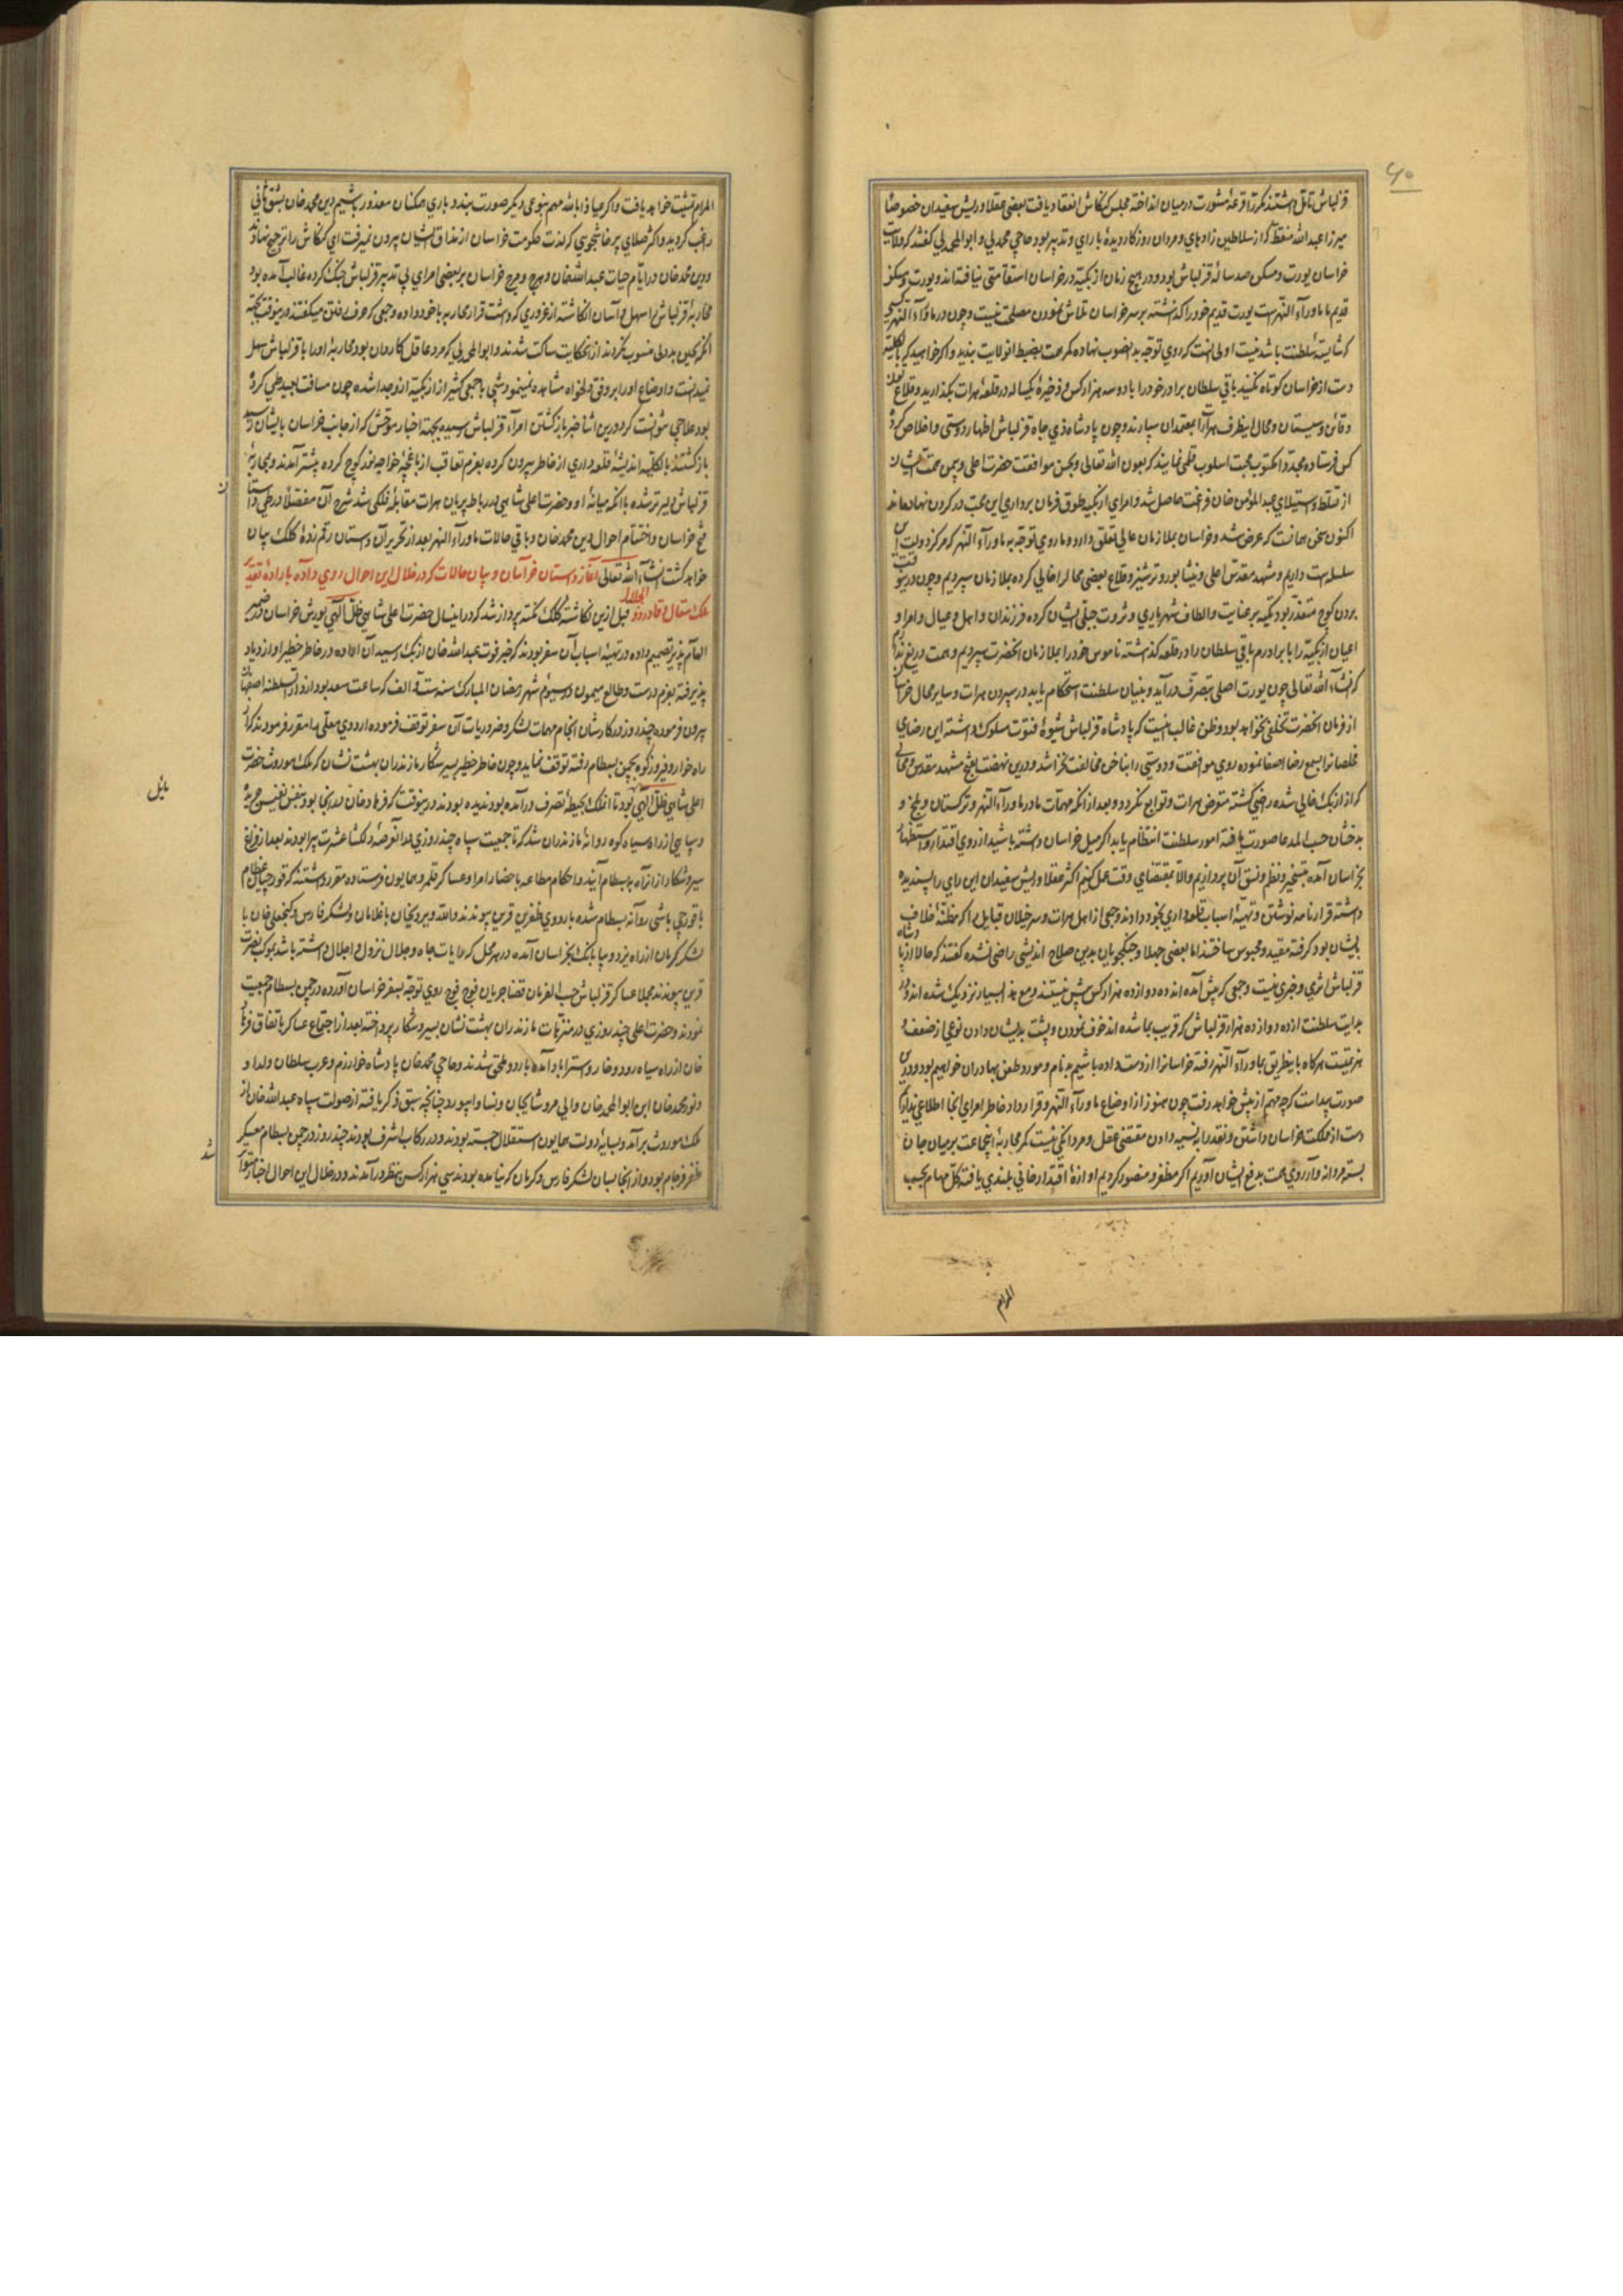 ۶۰
قزلباش تامل داشتند مکرر قرعهٔ مشورت درمیان انداخته مجلس کنکاش انعقاد یافت بعضی عقلا و ریش سفیدان خصوصا
میرزا عبدالله منقط که از سلاطین زادهای و مردان روزکار دیدهٔ با رای و تدبیر بود و حاجی محمد بی و ابوالمحمد بی کفتند که ولایت
خراسان یورت و مسکن صد سالهٔ قزلباش بود و در هیچ زمان ازبکیه در خراسان استقامتی نیافته‌اند و یورت و مسکن
قدیم ما ماورآء النهر است یورت قدیم خود را کذاشته برسر خراسان تلاش نمودن مصلحت نیست و چون در ماورآء النهر کسی
که شایستهٔ سلطنت باشد نیست اولی انست که روی توجه بدانصوب نهاده کمر همت بضبط انولایت بندید و اکر خواهید که بالکلیه
دست از خراسان کوتاه نکنید باقی سلطان برادر خود را با دو سه هزار کس و ذخیرهٔ یکساله در قلعهٔ هرات بکذارید و قلاع
و قائن و سیستان و محال اینطرف هرات را بمعتمدان سپارند و چون پادشاه ذی جاه قزلباش اظهار دوستی و اخلاص کرده
کس فرستاده مجددا مکتوب محبت اسلوب قلمی نمایند که بعون الله تعالی و بحسن موافقت حضرت اعلی و یمن همت ایشان
از تسلط و استیلای عبدالمؤمن خان فراغت حاصل شد و امرای ازبکیه طوق فرمان برداری این محب در کردن نهاده‌اند
اکنون سخن همانست که عرض شد و خراسان بملازمان عالی تعلق دارد و ما روی توجه به ماورآء النهر که مرکز دولت این
سلسله است داریم و مشهد مقدس اعلی و نیشابور و ترشیز و قلاع بعضی محال را خالی کرده بملازمان سپردیم و چون درینوقت
بردن کوچ متعذر بود تکیه بر عنایت و الطاف شهریاری و ثروت جبلی ایشان کرده فرزندان و اهل و عیال و امرا و
اعیان ازبکیه را با برادرم باقی سلطان را در قلعه کذاشته ناموس خود را بملازمان انحضرت سپردیم و همت دریغ ندارند
که انشاءالله تعالی چون یورت اصلی بتصرف درآید و بنیان سلطنت استحکام یابد در سپردن هرات و سایر محال خراسان
از فرمان انحضرت تخلفی نخواهد بود و ظن غالب اینست که پادشاه قزلباش شیوهٔ فتوت مسلوک داشته این رضای
مخلصانرا بسمع رضا اصغا نموده روی موافقت و دوستی را بناخن مخالفت نخراشد و درین نهضت بفتح مشهد مقدس و محالی
که از ازبک خالی شده راضی کشته متعرض هرات و توابع نکردد و بعد از انکه مهمات ما در ماورآء النهر و ترکستان و بلخ و
بدخشان حسب المدعا صورت یافته امور سلطنت انتظام یابد اکر میل خراسان داشته باشید از روی اقتدار و استظهار
بخراسان آمده بتسخیر و نظم و نسق آن پردازیم والا بمقتضای وقت عمل کنیم اکثر عقلا و ریش سفیدان این رای را پسندیده
داشته قرار نامه نوشتن و تهیهٔ اسباب قلعه داری بخود دادند و جمعی از اهل هرات و سرخیلان قبایل را که مظنهٔ خلاف
بایشان بود کرفته مقید و محبوس ساختند اما بعضی جهلا و جنکجویان بدین صلاح اندیشی راضی نشده کفتند که حالا از پادشاه
قزلباش اثری و خبری نیست و جمعی که پیش آمده‌اند ده دوازده هزار کس بیش نیستند و مع هذا بسیار نزدیک شده‌اند و در
بدایت سلطنت از ده دوازده هزار قزلباش که قریب بما شده‌اند خوف نمودن و پشت بدیشان دادن نوعی از ضعف و
هزیمتست هرکاه باینطریق بماورآء النهر رفته خراسانرا از دست داده باشیم بدنام و مورد طعن بهادران خواهیم بود و درین
صورت پیداست که چه مهم از پیش خواهد رفت چون هنوز از اوضاع ماورآء النهر و قرارداد خاطر امرای انجا اطلاعی نداریم
دست از مملکت خراسان داشتن و نقد را بنسیه دادن مقتضی عقل و مردانکی نیست کمر محاربهٔ انجماعت بر میان جان
بسته مردانه‌وار روی همت بدفع ایشان آوریم اکر مظفر و منصور کردیم اوازهٔ اقتدار خانی بلندی یافته کل مهام بحسب
المرام
المرام تمشیت خواهد یافت و اکر عیاذا بالله مهم بنوعی دیکر صورت بندد باری همکنان معذور باشیم دین محمد خان بشق ثانی
راغب کردید و اکثر صلای پرخاشجویی که لذت حکومت خراسان از مذاق ایشان بیرون نمیرفت این کنکاش را ترجیح نهادند
و دین محمد خان در ایام حیات عبدالله خان و هرج و مرج خراسان بر بعضی امرای بی تدبیر قزلباش جنک کرده غالب آمده بود
محاربهٔ قزلباش را سهل و آسان انکاشته از غروری که داشت قرار محاربه با خود داده و جمعی که حرف رفتن میکفتند درینوقت بجهته
انکه بجبن و بددلی منسوب نکردند از انحکایت ساکت شدند و ابوالمحمد بی که مرد عاقل کاردان بود محاربهٔ او را با قزلباش سهل
نمیدانست و اوضاع او را بر وفق دلخواه مشاهده نمینمود شبی با جمعی کثیر از ازبکیه ازو جدا شده چون مسافت بعید طی کرده
بود علاجی نتوانست کرد درین اثنا خبر بازکشتن امرآء قزلباش رسیده بجهته اخبار موحش که از جانب خراسان بایشان رسید
بازکشتند بالکلیه اندیشهٔ قلعه داری از خاطر بیرون کرده بعزم تعاقب از باغچهٔ خواجه اند کوچ کرده پیشتر آمدند و بمحاربهٔ
قزلباش دلیرتر شده با انکه میانهٔ او و حضرت اعلی شاهی در رباط پریان هرات مقابلهٔ فلکی شد شرح آن مفصلا در طی داستان
فتح خراسان و اختتام احوال دین محمد خان و باقی حالات ماورآء النهر بعد از تحریر آن داستان رقم زدهٔ کلک بیان
خواهد کشت انشاءالله تعالی آغاز داستان خراسان و بیان حالات که در خلال این احوال روی داده باراده تقدیر
ملک متعال و قادر ذو الجلال قبل ازین نکاشتهٔ کلک نکته پرداز شد که درابنسال حضرت اعلی شاهی ظل آلهی یورش خراسان در ضمیر
الهام پذیر تصمیم داده در تهیهٔ اسباب آن سفر بودند که خبر فوت عبدالله خان ازبک رسید آن اراده در خاطر خطیر او ازدیاد
پذیرفته بعزم درست و طالع میمون در سیوم شهر رمضان المبارک سنه ستة و الف که ساعت سعد بود از دارالسلطنه اصفهان
بیرون فرموده چند روز در کارشان انجام مهمات لشکر و ضروریات آن سفر توقف فرموده اردوی معلی را مقرر فرمودند که از
راه خوار و فیروزکوه بچمن بسطام رفته توقف نماید و چون خاطر خطیر بسیر شکار مازندران بهشت نشان که ملک موروث حضرت
اعلی شاهی ظل آلهی بود تا انملک بحیطهٔ تصرف درآمده بود ندیده بودند درینوقت که فرهاد خان در انجا بود بنفس نفیس جریده
و سپاهی از راه سیاه کوه روانهٔ مازندران شد که تا جمعیت سپاه چند روزی در آنعرصهٔ دلکشا عشرت پیرا بودند بعد از فراغ
سیر و شکار از انراه به بسطام آیند و احکام مطاعه باحضار امرا و عساکر قلمرو همایون فرستاده مقرر داشتند که قورچیان عظام
با قورچی باشی روانه بسطام شده باردوی ظفرین قرین پیوندند و الله ویردیخان با غلامان و لشکر فارس و کنجعلی خان با
لشکر کرمان از راه یزد و بیابانک بخراسان آمده در هر محل که رایات جاه و جلال نزول و اجلال داشته باشد بموکب نصرت
قرین پیوندند مجملا عساکر قزلباش حسب الفرمان قضا جریان فوج فوج روی توجه بسفر خراسان آورده در چمن بسطام جمعیت
نمودند و حضرت اعلی چند روزی در متنزهات مازندران بهشت نشان بسیر و شکار پرداخته بعد از اجتماع عساکر باتفاق فرهاد
خان از راه سیاه رود و خار و استراباد آمده باردو ملحق شدند و حاجی محمد خان پادشاه خوارزم و عرب سلطان ولد او
و نور محمد خان ابن ابوالمحمد خان والی مرو شایجان و نسا و ابیورد چنانچه سبق ذکر یافته از صولت سپاه عبدالله خان از
ملک موروث برآمده بسایهٔ دولت همایون استقلال جسته بودند و در رکاب اشرف بودند چند روز در چمن بسطام معسکر
ظفر فرجام بود و از انجا سبان لشکر فارس و کرمان که نیامده بودند سی هزار کس بنظر درآمدند و در خلال این احوال اخبار متواتر
مایل
ن
شد